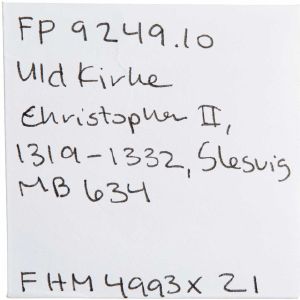 FP 9249.10
Uld Kirke
Christopher II,
1319-1332, Slesvig
MB 634
FHM 4993 x 21